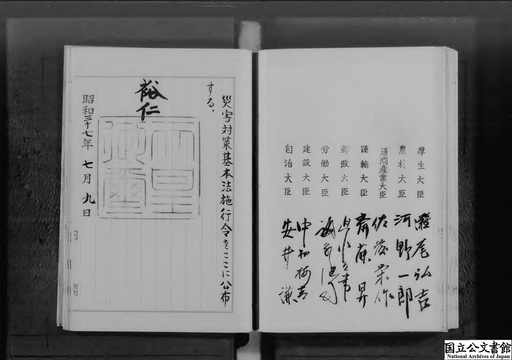 厚生大臣 灘尾弘吉
農林大臣 河野一郎
通商産業大臣 佐藤栄作
運輸大臣 齋藤昇
郵政大臣
労働大臣
建設大臣 中村梅吉
自治大臣 安井謙
災害対策基本法施行令をここに公布
する。
裕仁
天皇御璽
昭和三十七年 七月 九日
国立公文書館
National Archives of Japan